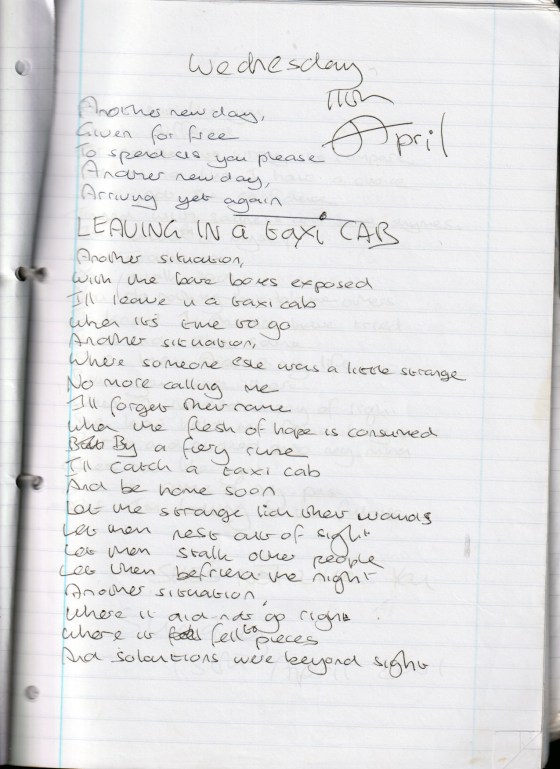 Wednesday
11th
April
Another new day,
Given for free
To spend as you please
Another new day,
Arriving yet again
LEAVING IN a taxi CAB
Another situation,
With the bare bones exposed
I'll leave in a taxi cab
When it's time to go
Another situation,
Where someone else was a little strange
No more calling me
I'll forget their name
When the flesh of hope is consumed
By a fiery rune
I'll catch a taxi cab
And be home soon
Let the strange lick their wounds
Let them rest out of sight
Let them stalk other people
Let them befriend the night
Another situation,
Where it did not go right
Where it fell to pieces
And solutions were beyond sight